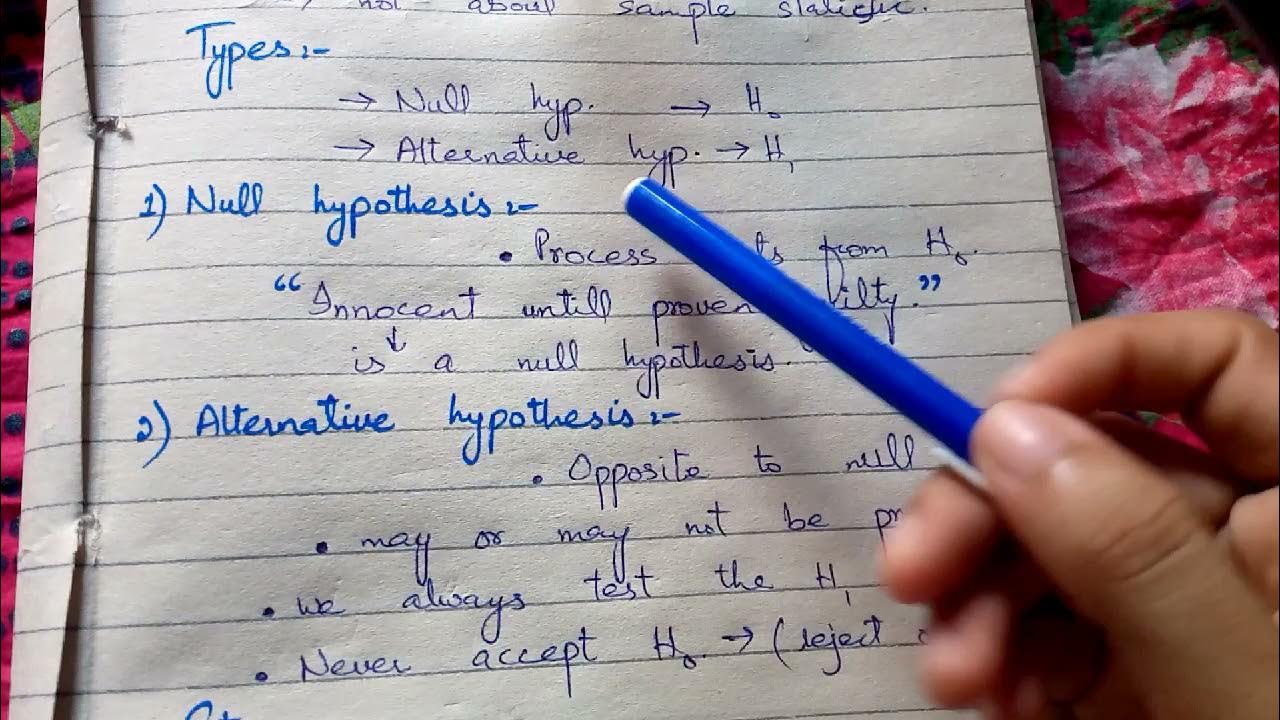 not about sample statistic.
Types :-
→ Null hyp. → H₀
→ Alternative hyp. → H₁
1) Null hypothesis :-
• Process from H₀.
“Innocent untill proven ilty.”
↓
is a null hypothesis.
2) Alternative hypothesis :-
• Opposite to null
• may or may not be
• we always test the H₁
• Never accept H₀ → (reject